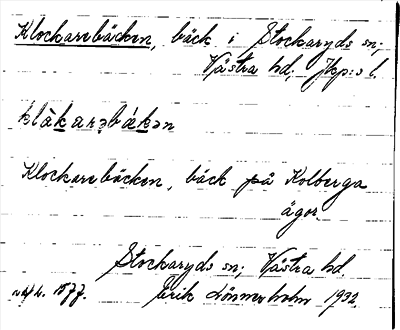 Klockarebäcken, bäck i Stockaryds sn;
Västra hd, Jkp:s l.
klåkarəbäkən
Klockarebäcken, bäck på Kolberga
ägor.
Stockaryds sn; Västra hd.
Erik Lönnerholm 1932